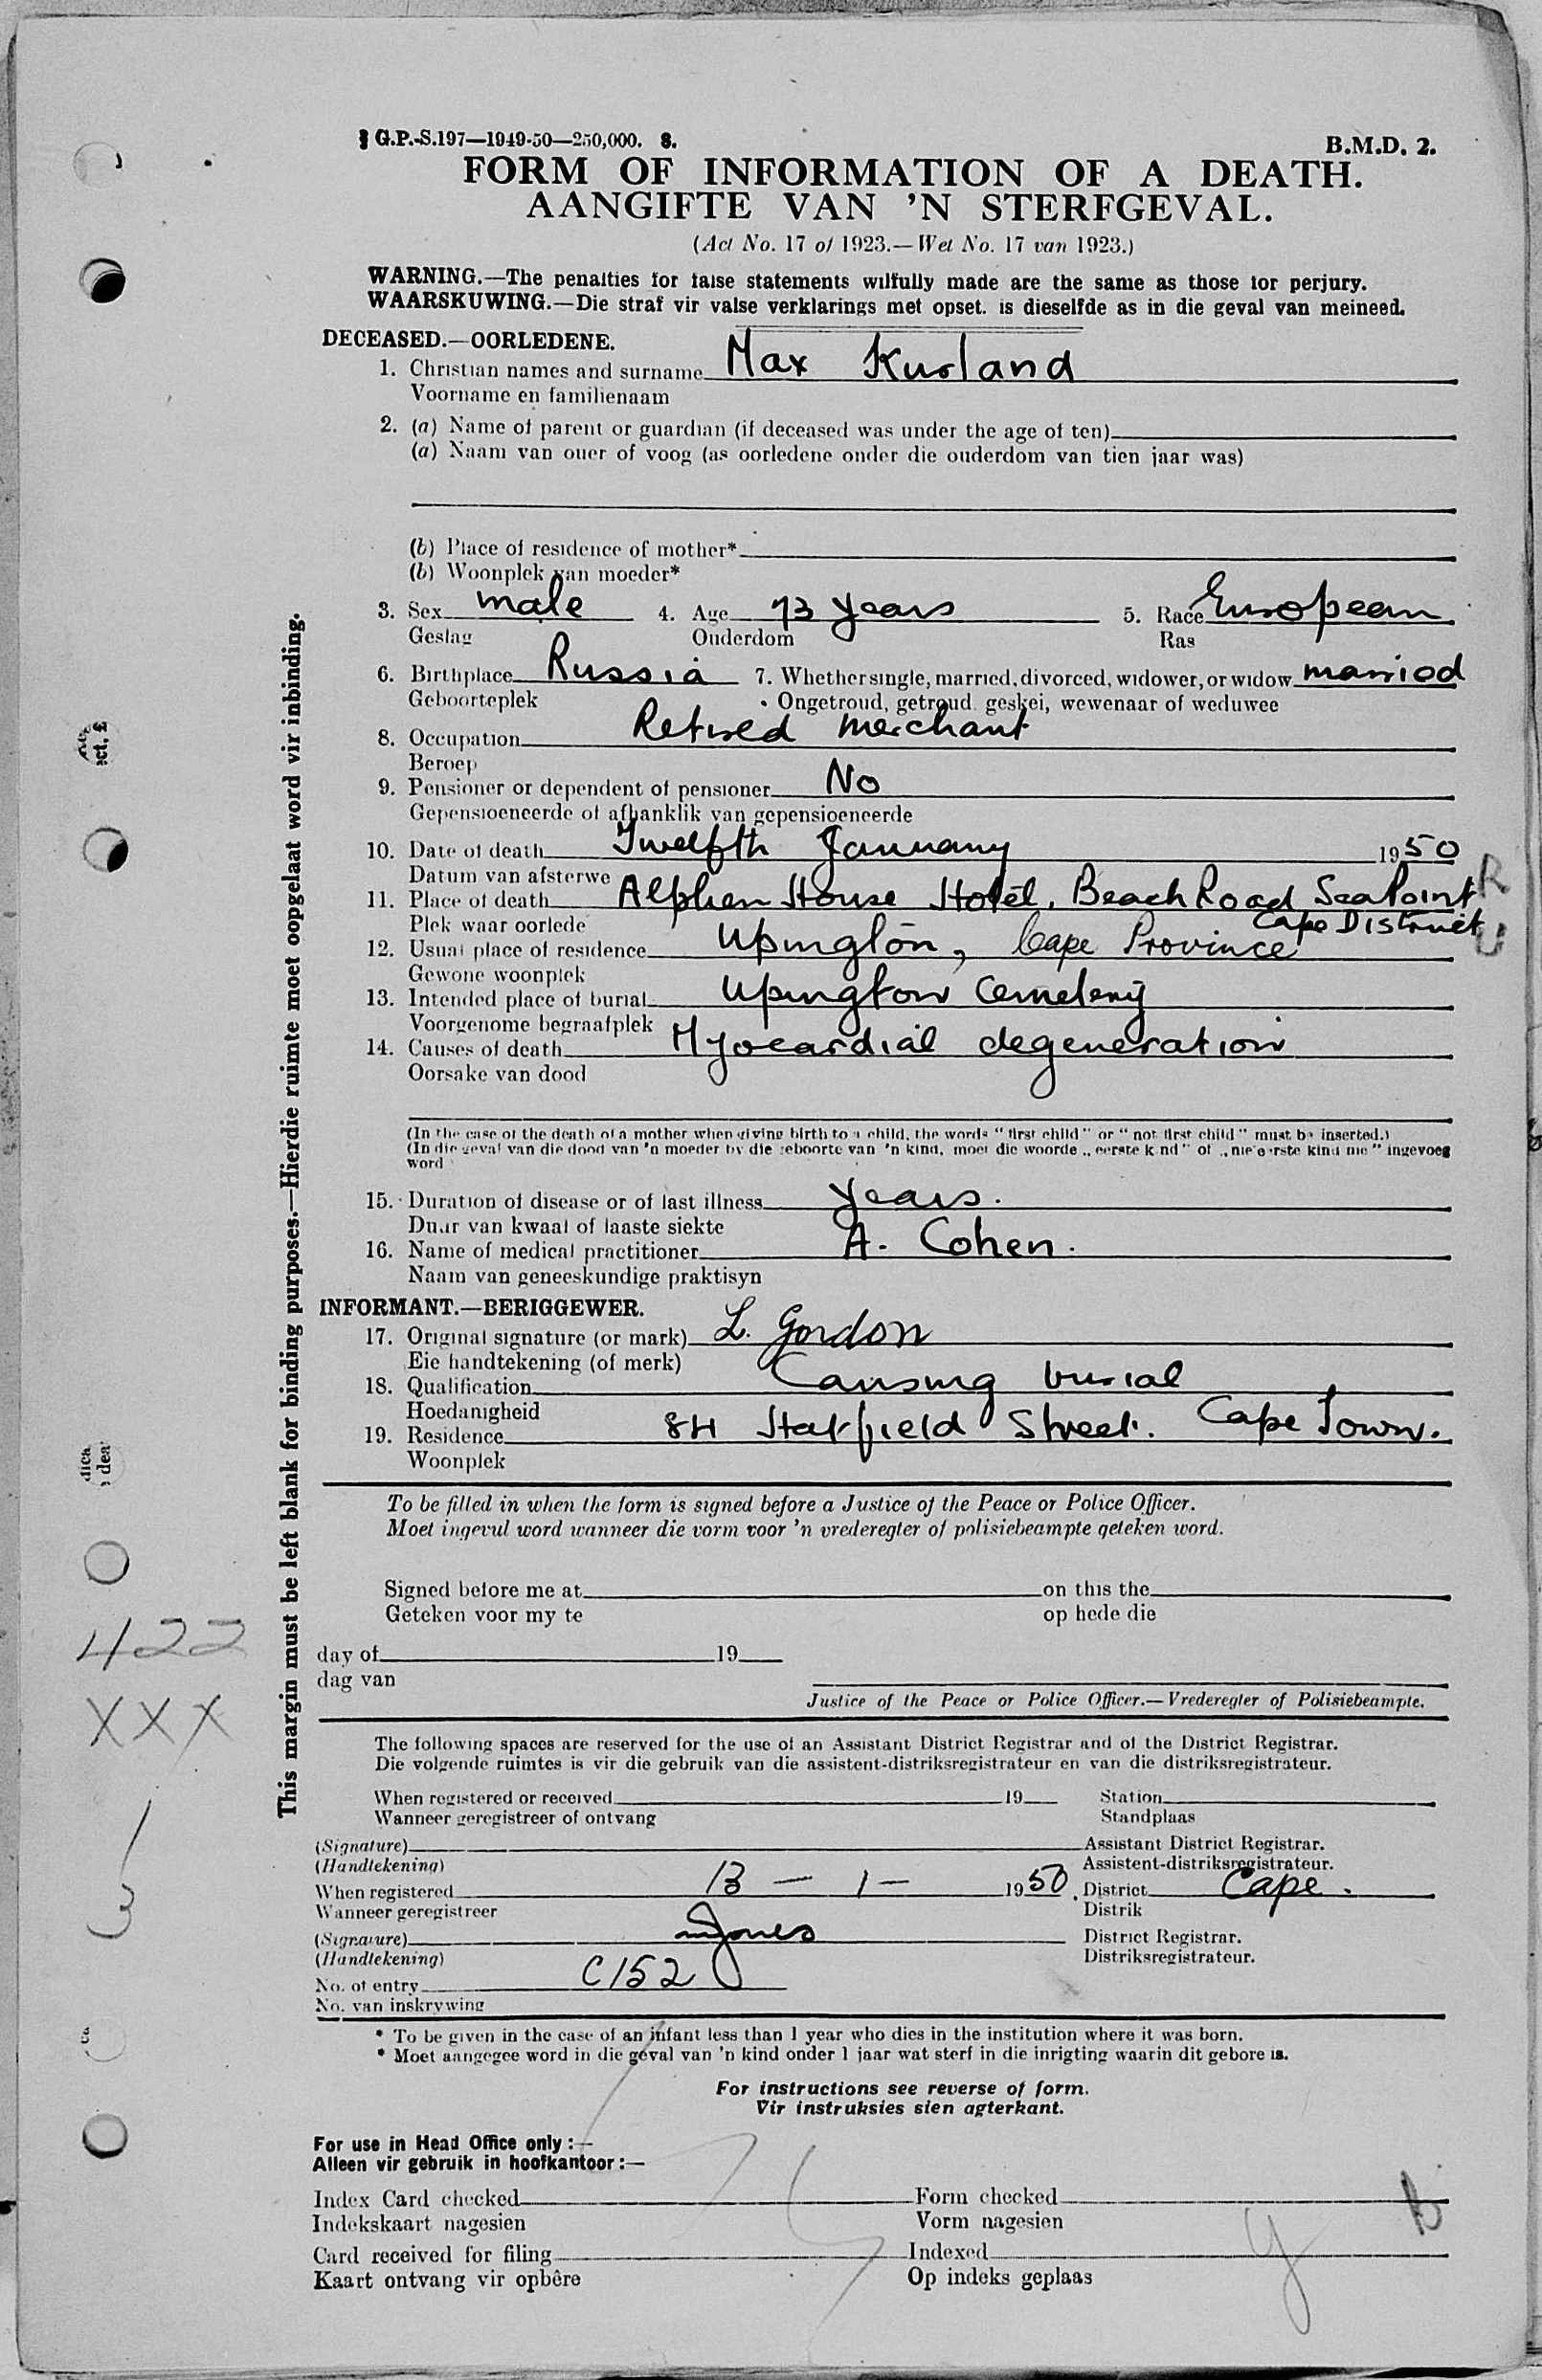 G.P.-S.197—1949-50—250,000. S.
B.M.D. 2.
FORM OF INFORMATION OF A DEATH.
AANGIFTE VAN 'N STERFGEVAL.
(Act No. 17 of 1923.—Wet No. 17 van 1923.)
WARNING.—The penalties for false statements wilfully made are the same as those for perjury.
WAARSKUWING.—Die straf vir valse verklarings met opset. is dieselfde as in die geval van meineed.
DECEASED.—OORLEDENE.
1. Christian names and surname Max Kurland
Voorname en familienaam
2. (a) Name of parent or guardian (if deceased was under the age of ten)
(a) Naam van ouer of voog (as oorledene onder die ouderdom van tien jaar was)
(b) Place of residence of mother*
(b) Woonplek van moeder*
3. Sex male 4. Age 73 years 5. Race European
Geslag Ouderdom Ras
6. Birthplace Russia 7. Whether single, married, divorced, widower, or widow married
Geboorteplek Ongetroud, getroud geskei, wewenaar of weduwee
8. Occupation Retired merchant
Beroep
9. Pensioner or dependent of pensioner No
Gepensioeneerde of afhanklik van gepensioeneerde
10. Date of death Twelfth January 1950
Datum van afsterwe
11. Place of death Alphen House Hotel, Beach Road Sea Point
Plek waar oorlede Cape District
12. Usual place of residence Upington, Cape Province
Gewone woonplek
13. Intended place of burial Upington Cemetery
Voorgenome begraafplek
14. Causes of death Myocardial degeneration
Oorsake van dood
(In the case of the death of a mother when giving birth to a child, the words "first child" or "not first child" must be inserted.)
(In die geval van die dood van 'n moeder by die geboorte van 'n kind, moet die woorde „eerste kind" of „nie eerste kind nie" ingevoeg
word
15. Duration of disease or of last illness years.
Duur van kwaal of laaste siekte
16. Name of medical practitioner A. Cohen.
Naam van geneeskundige praktisyn
INFORMANT.—BERIGGEWER.
17. Original signature (or mark) L. Gordon
Eie handtekening (of merk)
18. Qualification Causing burial
Hoedanigheid
19. Residence 84 Hatfield Street. Cape Town.
Woonplek
To be filled in when the form is signed before a Justice of the Peace or Police Officer.
Moet ingevul word wanneer die vorm voor 'n vrederegter of polisiebeampte geteken word.
Signed before me at on this the
Geteken voor my te op hede die
day of 19
dag van
Justice of the Peace or Police Officer.—Vrederegter of Polisiebeampte.
The following spaces are reserved for the use of an Assistant District Registrar and of the District Registrar.
Die volgende ruimtes is vir die gebruik van die assistent-distriksregistrateur en van die distriksregistrateur.
When registered or received 19 Station
Wanneer geregistreer of ontvang Standplaas
(Signature) Assistant District Registrar.
(Handtekening) Assistent-distriksregistrateur.
When registered 13 – 1 – 1950, District Cape.
Wanneer geregistreer Distrik
(Signature) Jones District Registrar.
(Handtekening) Distriksregistrateur.
No. of entry C152
No. van inskrywing
* To be given in the case of an infant less than 1 year who dies in the institution where it was born.
* Moet aangegee word in die geval van 'n kind onder 1 jaar wat sterf in die inrigting waarin dit gebore is.
For instructions see reverse of form.
Vir instruksies sien agterkant.
For use in Head Office only :—
Alleen vir gebruik in hoofkantoor :—
Index Card checked Form checked
Indekskaart nagesien Vorm nagesien
Card received for filing Indexed
Kaart ontvang vir opbêre Op indeks geplaas
This margin must be left blank for binding purposes.—Hierdie ruimte moet oopgelaat word vir inbinding.
422
XXX